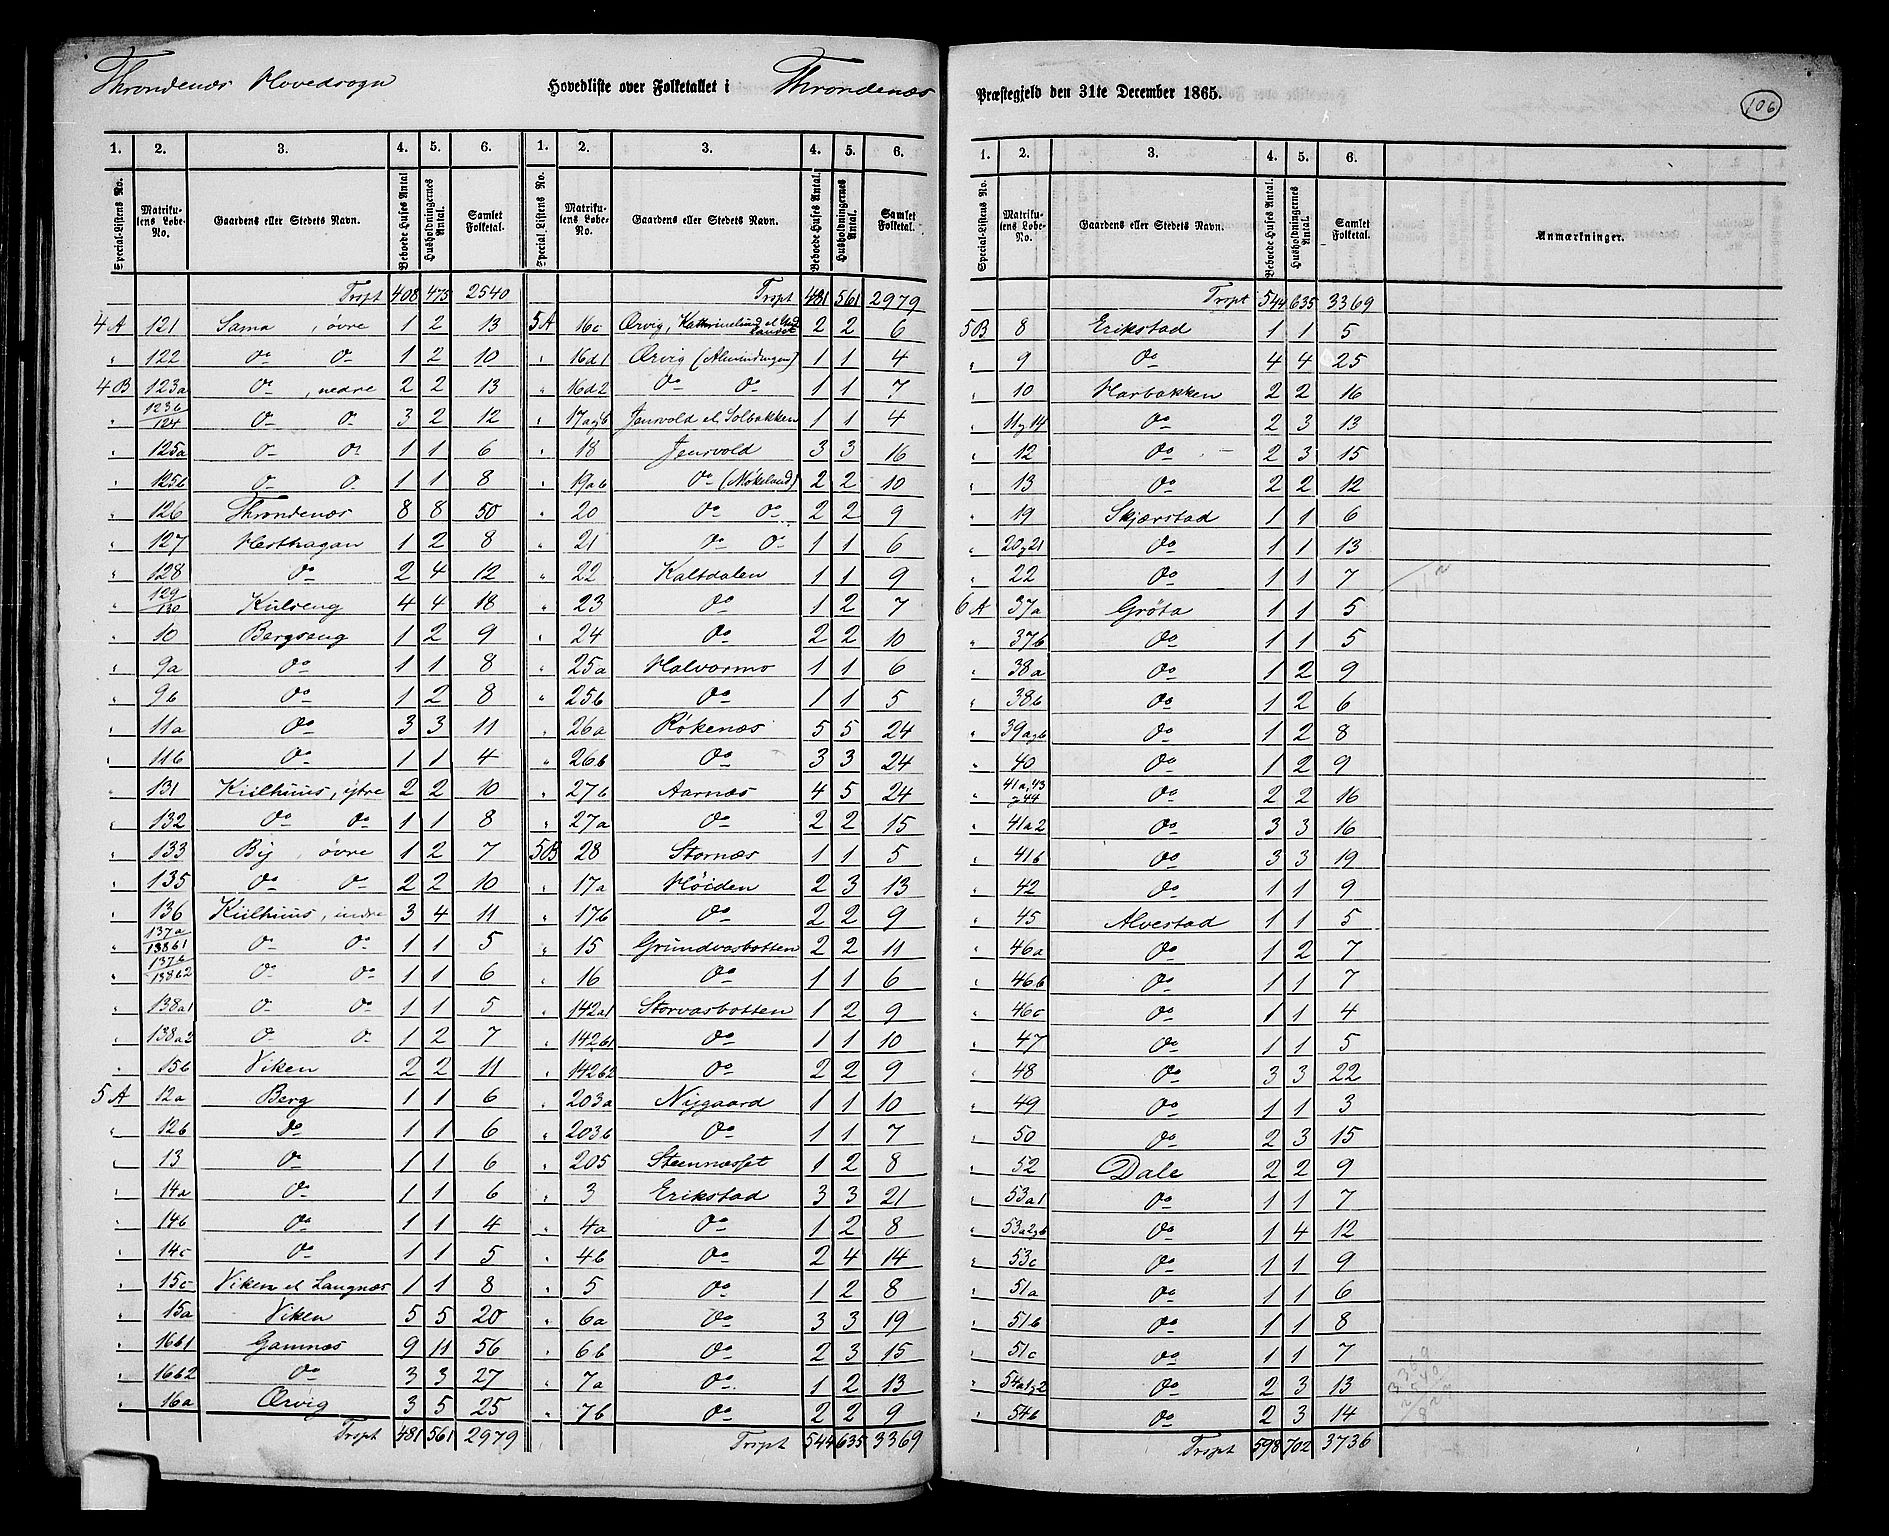 Throndenæs Hovedsogn Hovedliste over Folketallet i Throndenæs Præstegjeld den 31te December 1865. 106
1. 2. 3. 4. 5. 6. 1. 2. 3. 4. 5. 6. 1. 2. 3. 4. 5. 6.
Special-Listens No. Matrikulens Løbe-No. Gaardens eller Stedets Navn. Beboede Huses Antal Husholdningernes Antal. Samlet Folketal.
Special-Listens No. Matrikulens Løbe-No. Gaardens eller Stedets Navn. Beboede Huses Antal. Husholdningernes Antal. Samlet Folketal.
Special-Listens No. Matrikulens Løbe-No. Gaardens eller Stedets Navn. Beboede Huses Antal. Husholdningernes Antal. Samlet Folketal. Anmærkninger.
Trspt 408 475 2540
4A 121 Sama, øvre 1 2 13
" 122 Do Do 1 2 10
4B 123a Do, nedre 2 2 13
" 123b/124 Do Do 3 2 12
" 125a Do Do 1 1 6
" 125b Do Do 1 1 8
" 126 Throndenæs 8 8 50
" 127 Hesthagan 1 2 8
" 128 Do 2 4 12
" 129/130 Kulseng 4 4 18
" 10 Bergseng 1 2 9
" 9a Do 1 1 8
" 9b Do 1 2 8
" 11a Do 3 3 11
" 11b Do 1 1 4
" 131 Kiilhuus, ytre 2 2 10
" 132 Do Do 1 1 8
" 133 By, øvre 1 2 7
" 135 Do Do 2 2 10
" 136 Kiilhuus, indre 3 4 11
" 137a/138b1 Do Do 1 1 5
" 137b/138b2 Do Do 1 1 6
" 138a1 Do Do 1 1 5
" 138a2 Do Do 1 2 7
" 15b Viken 2 2 11
5A 12a Berg 1 1 6
" 12b Do 1 1 6
" 13 Do 1 1 6
" 14a Do 1 1 6
" 14b Do 1 1 4
" 14c Do 1 1 5
" 15c Viken el Langnæs 1 1 8
" 15a Viken 5 5 20
" 16b1 Gamnæs 9 11 56
" 16b2 Do 3 3 27
" 16a Ørvig 3 5 25
Trspt 481 561 2979
Trspt 481 561 2979
5A 16c Ørvig, Kathrinelund el 2 2 6
" 16d1 Ørvig (Almindingen) 1 1 4
" 16d2 Do Do 1 1 7
" 17agb Jensvold el. Solbakken 1 1 4
" 18 Jensvold 3 3 16
" 19ab Do (Møkeland) 2 2 10
" 20 Do Do 2 2 9
" 21 Do Do 1 1 6
" 22 Kaltdalen 1 1 9
" 23 Do 1 2 7
" 24 Do 2 2 10
" 25a Halvarmo 1 1 6
" 25b Do 1 1 5
" 26a Røkenæs 5 5 24
" 26b Do 3 3 24
" 27b Aarnæs 4 5 24
" 27a Do 2 2 15
5B 28 Stornæs 1 1 5
" 17a Høiden 2 3 13
" 17b Do 2 2 9
" 15 Grundvasbotten 2 2 11
" 16 Do 1 1 6
" 142a1 Storvasbotten 1 2 9
" 142b1 Do 1 1 10
" 142b2 Do 2 2 9
" 203a Nygaard 1 1 10
" 203b Do 1 1 7
" 205 Steennæsset 1 2 8
" 3 Erikstad 3 3 21
" 4a Do 1 2 8
" 4b Do 2 4 14
" 5 Do 1 2 8
" 6a Do 3 3 19
" 6b Do 2 3 15
" 7a Do 1 2 13
" 7b Do 2 2 9
Trspt 544 635 3369
Trspt 544 635 3369
5B 8 Erikstad 1 1 5
" 9 Do 4 4 25
" 10 Harbakken 2 2 16
" 11g14 Do 2 3 13
" 12 Do 2 3 15
" 13 Do 2 2 12
" 19 Skjærstad 1 1 6
" 20g21 Do 1 1 13
" 22 Do 1 1 7
6A 37a Grøta 1 1 5
" 37b Do 1 1 5
" 38a Do 1 2 9
" 38b Do 1 2 6
" 39agb Do 1 2 8
" 40 Do 1 2 9
" 41a1, 43 g44 Do 2 2 16
" 41a2 Do 3 3 16
" 41b Do 3 3 19
" 42 Do 1 1 9
" 45 Alvestad 1 1 5
" 46a Do 1 2 7
" 46b Do 1 1 7
" 46c Do 1 1 4
" 47 Do 1 1 5
" 48 Do 3 3 22
" 49 Do 1 1 3
" 50 Do 2 3 15
" 52 Dale 2 2 9
" 53a1 Do 1 1 7
" 53a2gb Do 1 4 12
" 53c Do 1 1 9
" 51a Do 1 1 6
" 51b Do 1 1 8
" 51c Do 1 1 7
" 54a1g2 Do 2 3 13
" 54b Do 2 3 14
Trspt 598 702 3736